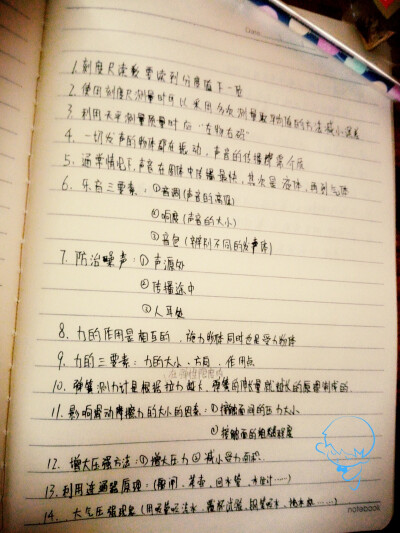 Date
1. 刻度尺读数要读到分度值下一位
2. 使用刻度尺测量时可以采用多次测量取平均值的方法减小误差
3. 利用天平测量质量时应"左物右码"
4. 一切发声的物体都在振动,声音的传播需介质
5. 通常情况下,声音在固体中传播最快,其次是液体,再到气体
6. 乐音三要素:①音调(声音的高低)
②响度(声音的大小)
③音色(辨别不同的发声体)
7. 防治噪声:①声源处
②传播途中
③人耳处
8. 力的作用是相互的,施力物体同时也是受力物体
9. 力的三要素:力的大小、方向、作用点
10. 弹簧测力计是根据拉力越大,弹簧的伸长量就越长的原理制成的.
11. 影响滑动摩擦力的大小的因素:①接触面间的压力大小
②接触面的粗糙程度
12. 增大压强方法:①增大压力②减小受力面积
13. 利用连通器原理:(船闸、茶壶、回水管、水位计……)
14. 大气压强现象(用吸管吸汽水、覆杯试验、钢笔吸水、抽水机……)
notebook